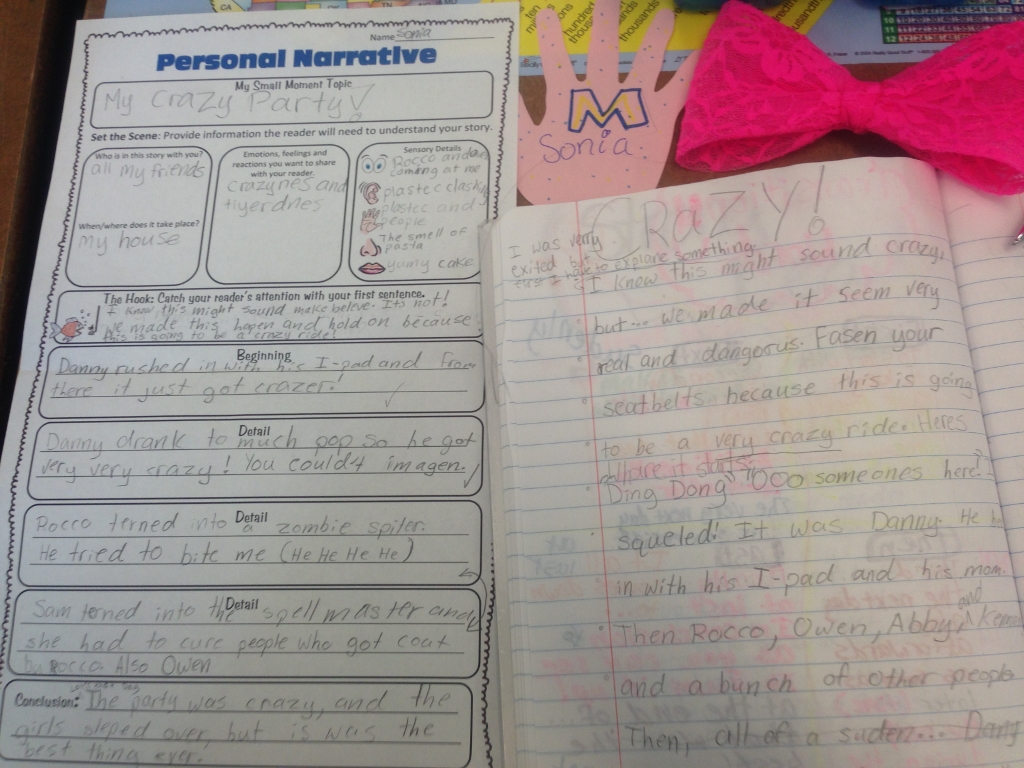 Name Sonia
Personal Narrative
My Small Moment Topic
My Crazy Party!
Set the Scene: Provide information the reader will need to understand your story.
Who is in this story with you?
all my friends
When/where does it take place?
My house
Emotions, feelings and
reactions you want to share
with your reader.
Crazynes and
tiyerdnes
Sensory Details
Rocco and
coming at me
plastec
plastec and
people
The smell of
pasta
yumy cake
The Hook: Catch your reader's attention with your first sentence.
I know this might sound make beleve. Its not!
We made this hapen and hold on because
this is going to be a crazy ride!
Beginning
Danny rushed in with his I-pad and from
there it just got crazer!
Detail
Danny drank to much pop so he got
very very crazy! You could4 imagen.
Detail
Rocco terned into a zombie spiter.
He tried to bite me (He He He He)
Detail
Sam terned into the spell master and
she had to cure people who got coat
by Rocco Also Owen
Conclusion: The party was crazy, and the
girls sleped over but is was the
best thing ever!
ten
hundred
thousands
thousands
M
Sonia
CRaZY!
I was verry
exited but
first I have to explane something.
I know this might sound crazy,
but... we made it seem very
real and dangorus. Fasen your
seatbelts because this is going
to be a very crazy ride. Heres
where it starts.
Ding Dong "OOO someones here!"
squeled! It was Danny. He
in with his I-pad and his mom.
Then Rocco, Owen, Abby, and
and a bunch of other people
Then, all of a suden... Dany